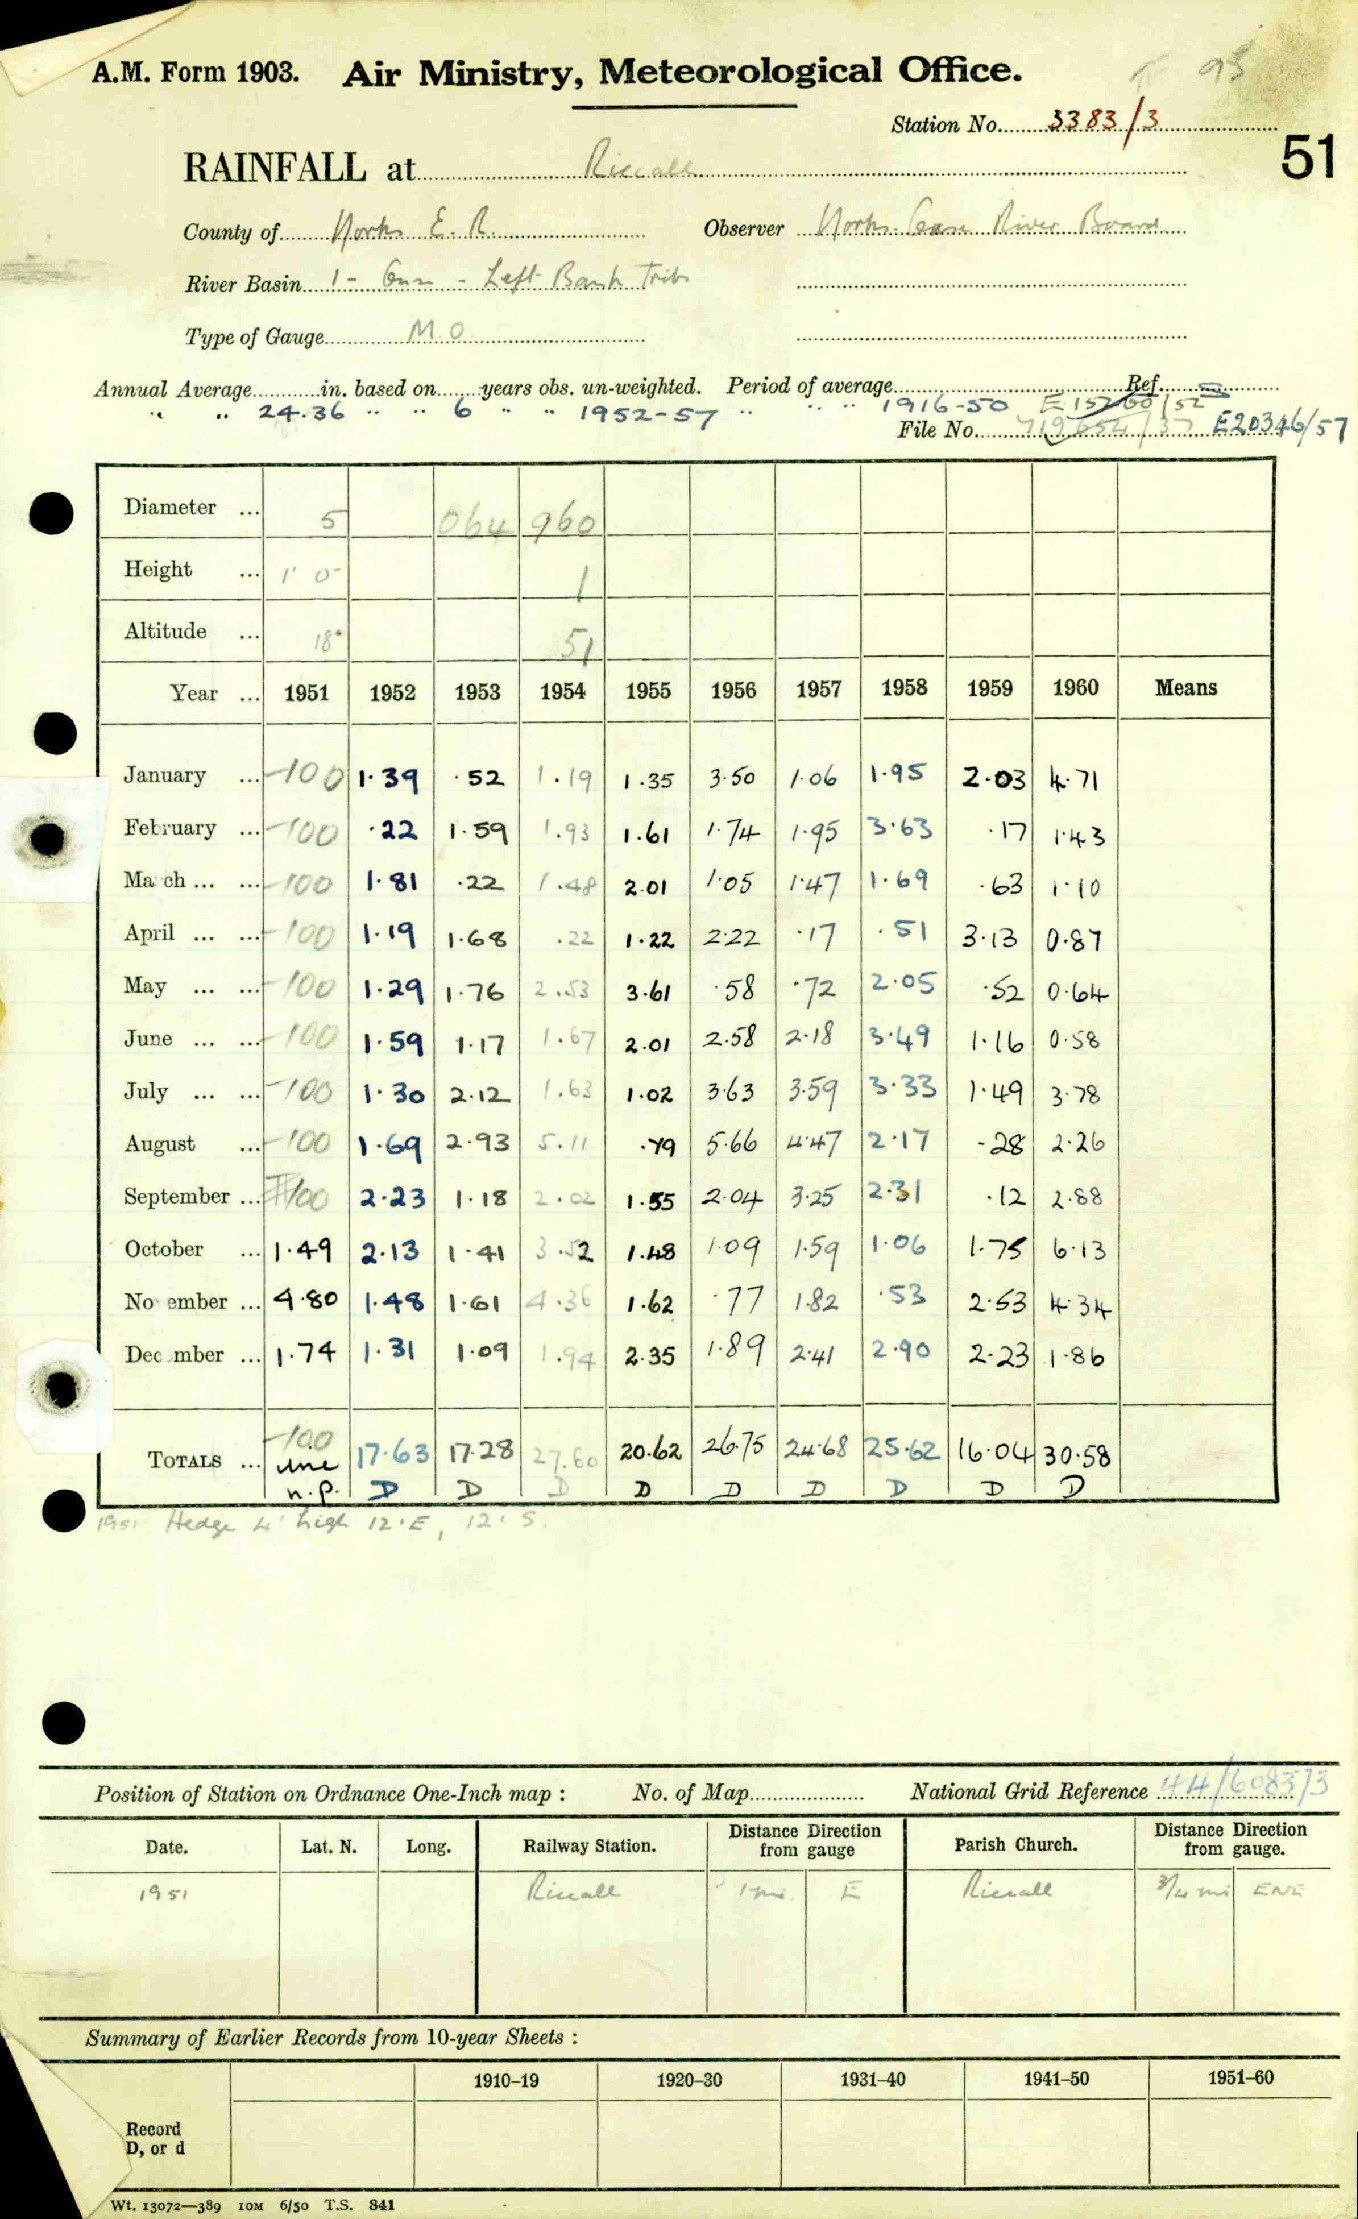 A.M. Form 1903. Air Ministry, Meteorological Office.
Station No. 3383/3
51
RAINFALL at Riccall
County of Yorks E. R. Observer Yorks Ouse River Board
River Basin 1 - Ouse - Left Bank Tribs
Type of Gauge M.O.
Annual Average in. based on years obs. un-weighted. Period of average Ref.
" " 24.36 " " 6 " " 1952-57 " " " " 1916-50
File No. E20346/57
Diameter ... 5 064 960
Height ... 1' 0" 1
Altitude ... 18' 51
Year ... 1951 1952 1953 1954 1955 1956 1957 1958 1959 1960 Means
January ... -100 1.39 .52 1.19 1.35 3.50 1.06 1.95 2.03 4.71
February ... -100 .22 1.59 1.93 1.61 1.74 1.95 3.63 .17 1.43
March ... ... -100 1.81 .22 1.48 2.01 1.05 1.47 1.69 .63 1.10
April ... ... -100 1.19 1.68 .22 1.22 2.22 .17 .51 3.13 0.87
May ... ... -100 1.29 1.76 2.53 3.61 .58 .72 2.05 .52 0.64
June ... ... -100 1.59 1.17 1.67 2.01 2.58 2.18 3.49 1.16 0.58
July ... ... -100 1.30 2.12 1.63 1.02 3.63 3.59 3.33 1.49 3.78
August ... -100 1.69 2.93 5.11 .79 5.66 4.47 2.17 .28 2.26
September ... -100 2.23 1.18 2.02 1.55 2.04 3.25 2.31 .12 2.88
October ... 1.49 2.13 1.41 3.52 1.48 1.09 1.59 1.06 1.75 6.13
November ... 4.80 1.48 1.61 4.36 1.62 .77 1.82 .53 2.53 4.34
December ... 1.74 1.31 1.09 1.94 2.35 1.89 2.41 2.90 2.23 1.86
TOTALS ... -100 17.63 17.28 27.60 20.62 26.75 24.68 25.62 16.04 30.58
n.p. D D D D D D D D D
1951 Hedge 4' high 12' E, 12' S.
Position of Station on Ordnance One-Inch map : No. of Map National Grid Reference 44/608373
Date. Lat. N. Long. Railway Station. Distance Direction from gauge Parish Church. Distance Direction from gauge.
1951 Riccall 1 mi. E Riccall 3/4 mi ENE
Summary of Earlier Records from 10-year Sheets :
1910–19 1920–30 1931–40 1941–50 1951–60
Record
D, or d
Wt. 13072—389 10M 6/50 T.S. 841